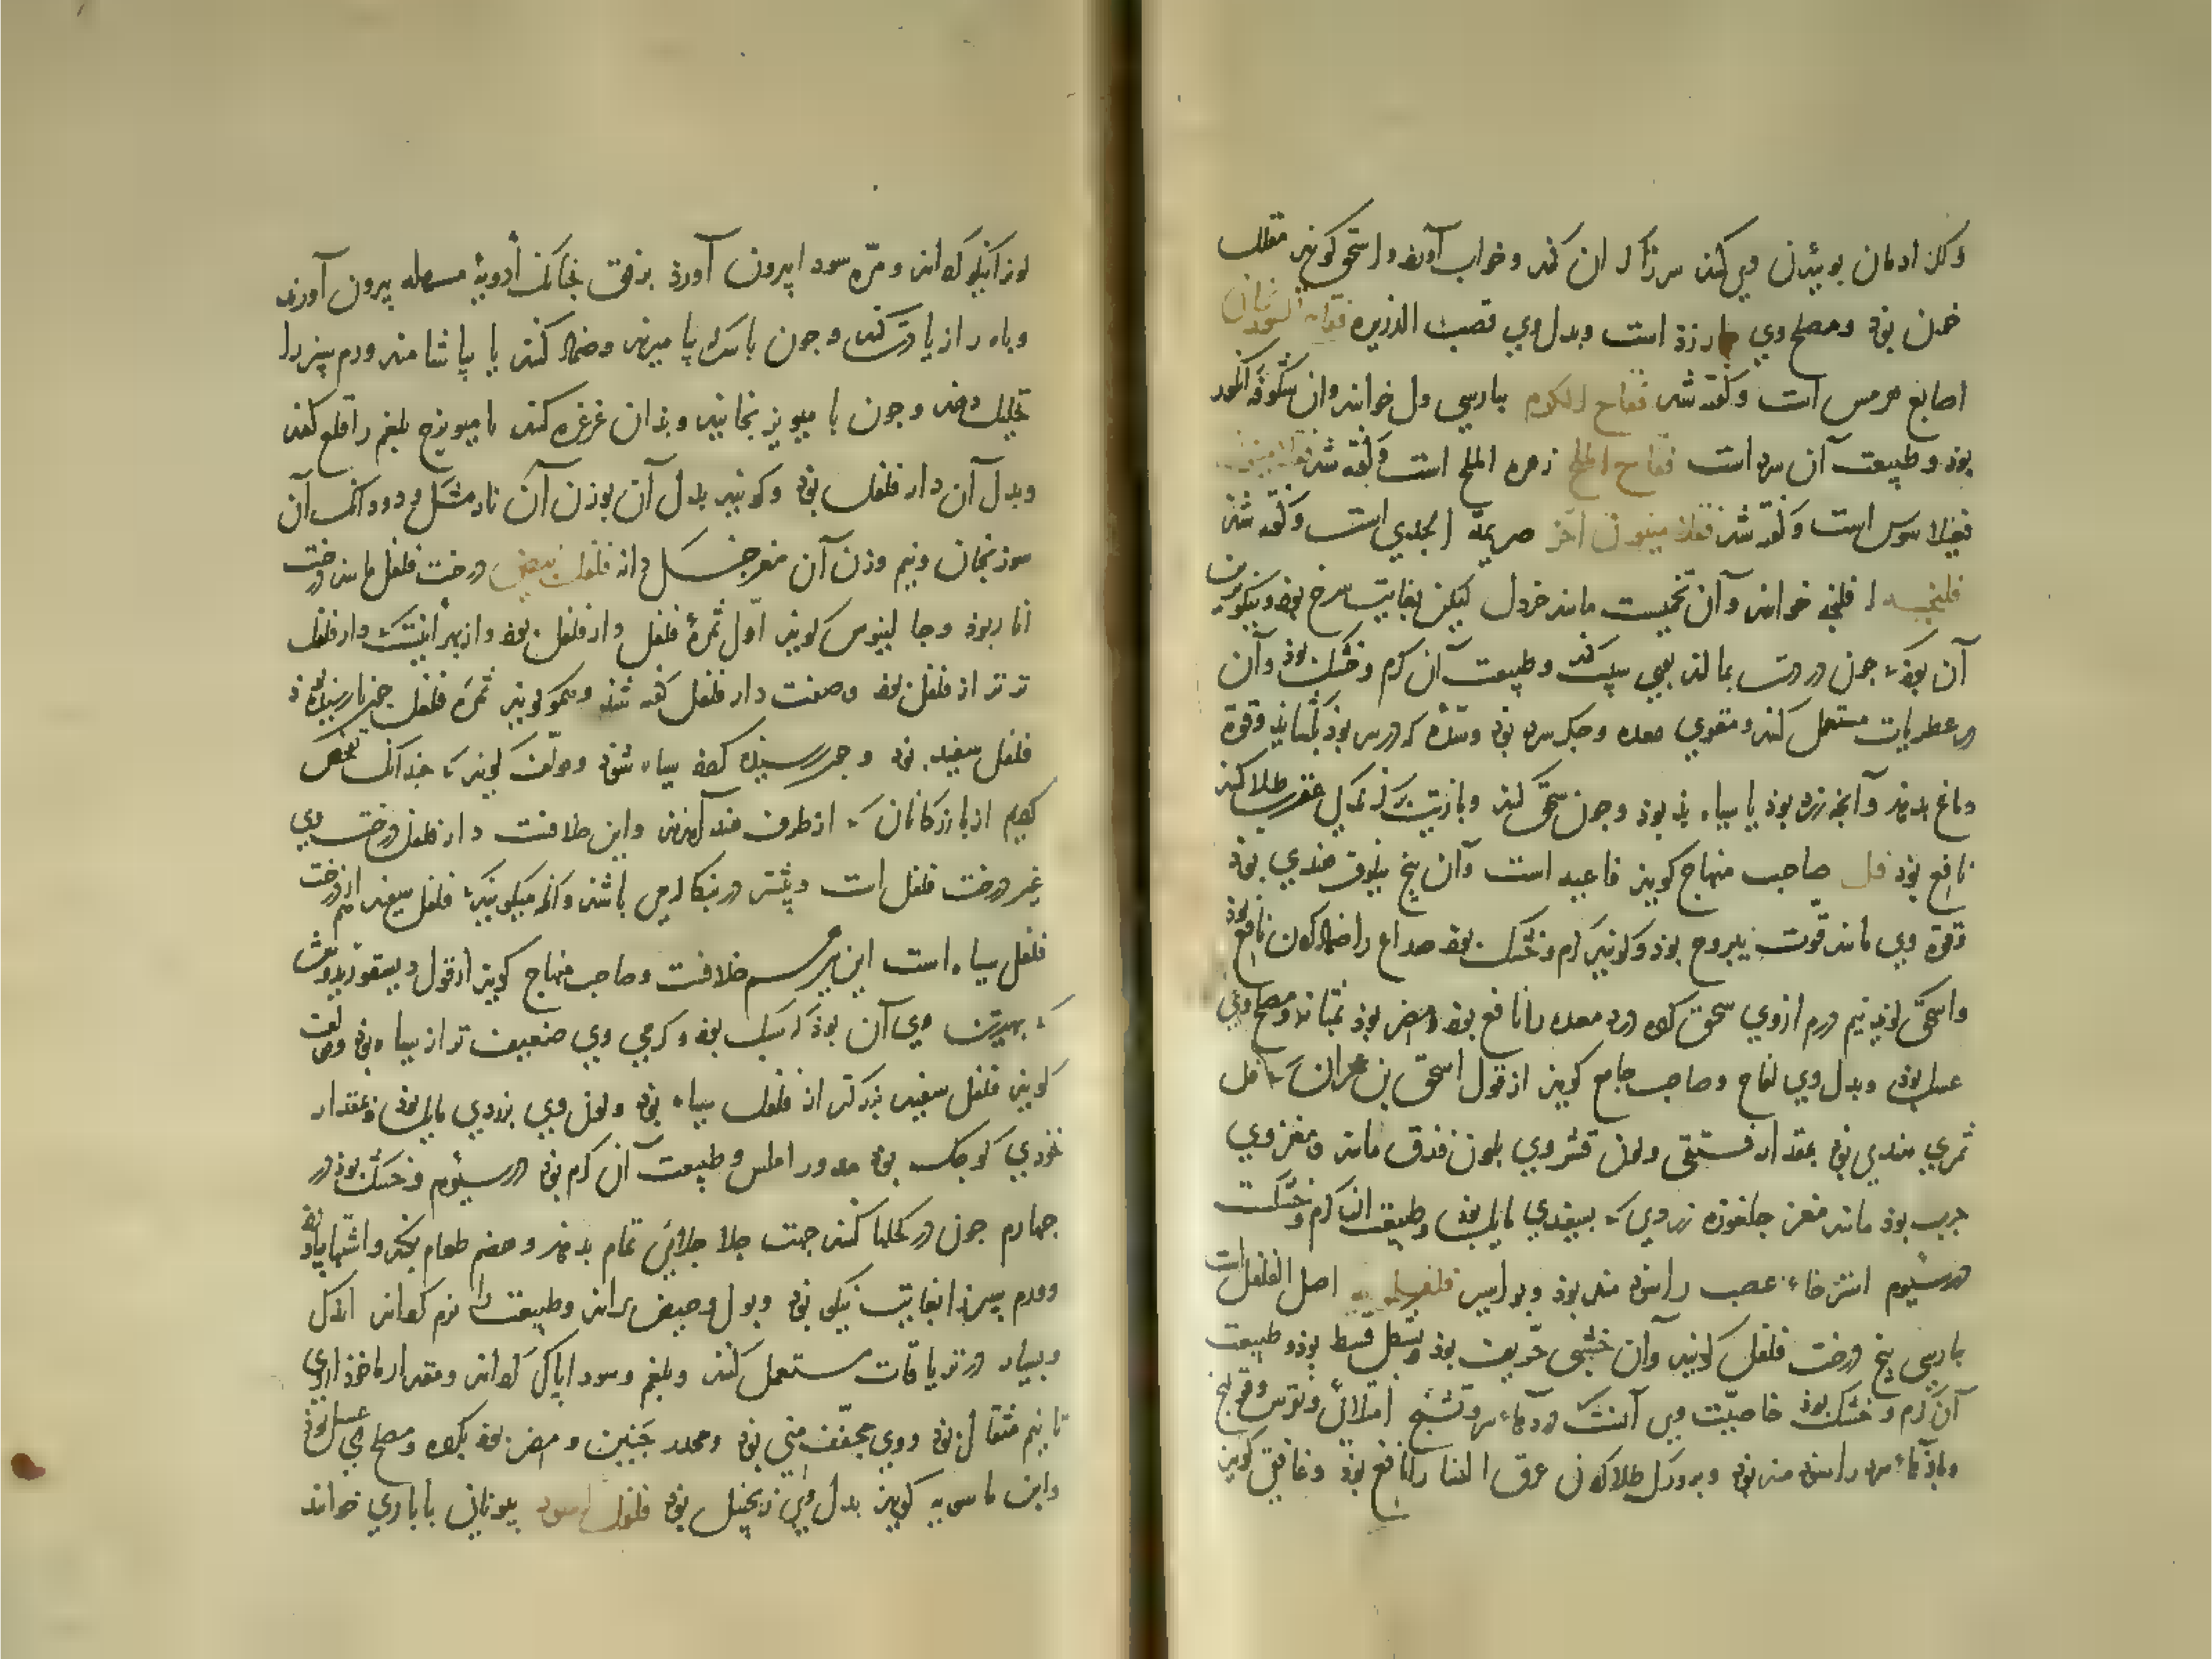 و کر ادمان بوئیدن وی کنند سر را کران کند و خواب آورد و اسحق کویذ مقلل
خون بوذ و مصلح وی است و بدل وی قصب الذریره فقاح السورنجان
اصابع هرمس است و کفته شد فقاح الکرم بپارسی ول خوانند و ان شکوفه انکور
بوذ و طبیعت آن سرد است فقاح الملح زهره الملح است و کفته شذ
است و کفته شذ آخر صریمة الجدی است و کفته شذ
فلنجه خوانند و آن تخمیست مانند خردل لیکن بغایت سرخ بوذ و نیکوترین
آن بوذ که جون در دست بمالند بوی سیب کند و طبیعت آن کرم و خشک بوذ و آن
در عطریات مستعمل کنند و مقوی معده و جکر سرد بوذ و سده که در سر بوذ بکشاید و قوة
دماغ بدهد و آنچه زرد بوذ یا سیاه بد بوذ و جون سحق کنند و با زیت بر کزیدکی عقرب طلا کنند
نافع بوذ فل صاحب منهاج کویذ فاعیه است و آن بیخ نیلوفر هندی بوذ
و قوة وی مانند قوت یبروح بوذ و کویند کرم و خشک بوذ صداع را ضماد کردن نافع بوذ
و اسحق کوید نیم درم ازوی سحق کرده درد معده را نافع بوذ و مضر بوذ بمثانه و مصلح وی
عسل بوذ و بدل وی لفاح و صاحب جامع کویذ از قول اسحق بن عمران که فل
ثمری هندی بوذ بمقدار فستقی و لون قشر وی بلون فندق مانند و مغز وی
جرب بوذ مانند مغز جلغوزه زردی که بسفیدی مایل بوذ و طبیعت ان کرم و خشکست
در سیوم استرخاء عصب را سود مند بوذ و بواسیر فلفلمویه اصل الفلفل است
بپارسی بیخ درخت فلفل کویند و آن خشبی حریف بوذ بشکل قسط بوذ و طبیعت
آن کرم و خشک بوذ خاصیت وی آنست که در آماء سرد و تشنج امتلائی و نقرس و قولنج
و بادهاء سرد را سود مند بوذ و بر ورک طلا کردن عرق النسا را نافع بوذ و غافقی کویذ
لون را نیکو کرداند و مره سودا بیرون آورد برفق نجنانک أدویهٔ مسهله بیرون آورد
و باه را زیادت کند و جون با سرکه بیامیزند و ضماد کنند یا بیاشامند ورم سپرز را
تحلیل دهند و جون با مویز بخایند و بذان غرغره کنند با میویزج بلغم را قلع کند
و بدل آن دار فلفل بوذ و کویند بدل آن بوزن آن نارمشک و دو دانک آن
سورنجان و نیم وزن آن مغز جنسک دانه فلفل ابیض درخت فلفل مانند درخت
انار بوذ و جالینوس کویذ اول ثمرهٔ فلفل دار فلفل بوذ و از بهر اینست که دار فلفل
تر تر از فلفل بوذ و صفت دار فلفل کفته شد و همو کویذ ثمره فلفل جون نارسیده بوذ
فلفل سفید بوذ و جون رسیده کردد سیاه شوذ و مولف کویذ که جندانک تفحص
کردیم از بازرکانان که از طرف هند آمدند و این خلافت دار فلفل درخت وی
غیر درخت فلفل است و بیشتر در بنکاله می باشد و آنکه میکویند که فلفل سفید از درخت
فلفل سیاه است این نیز هم خلافست و صاحب منهاج کویذ از قول دیسقوریدوس
که بهترین وی آن بوذ که سبک بوذ و کرمی وی ضعیف تر از سیاه بوذ و مولف
کویذ فلفل سفید بزرکتر از فلفل سیاه بوذ و لون وی بزردی مایل بوذ و بمقدار
نخودی کوجک بوذ مدور املس و طبیعت آن کرم بوذ در سیوم و خشک بوذ در
جهارم جون در کحلها کنند جهت جلا جلائی تمام بدهد و هضم طعام بکند و اشتها بیاورد
و ورم سپرز را بغایت نیکو بوذ و بول و حیض براند و طبیعت را نرم کرداند اندک
و بسیار در تریاقات مستعمل کنند و بلغم و سودا پاک کرداند و مقدار ماخوذ از وی
تا نیم مثقال بوذ و وی مجفف منی بوذ و محدر جنین و مضر بوذ بکرده و مصلح وی عسل بوذ
و ابن ماسویه کویذ بدل وی زنجبیل بوذ فلفل اسود بیونانی باباری خوانند